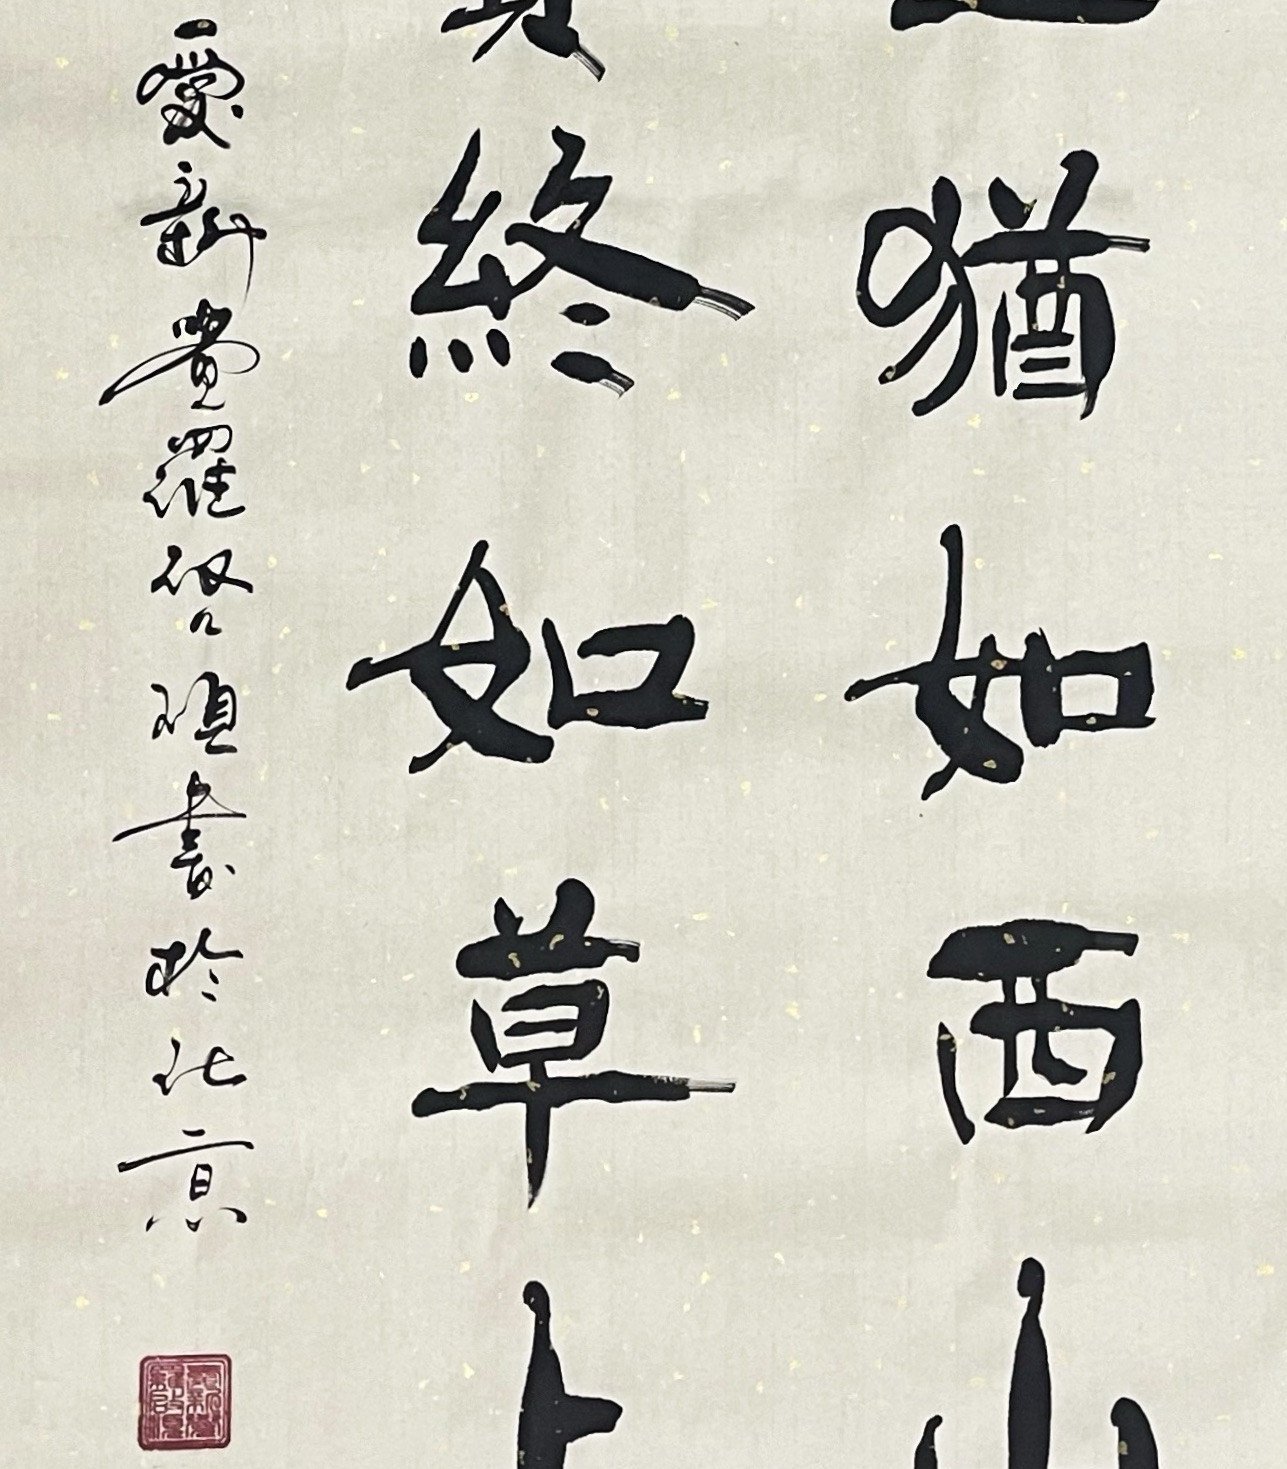 猶如西山
終如草上
愛新覺羅啓頊書於北京